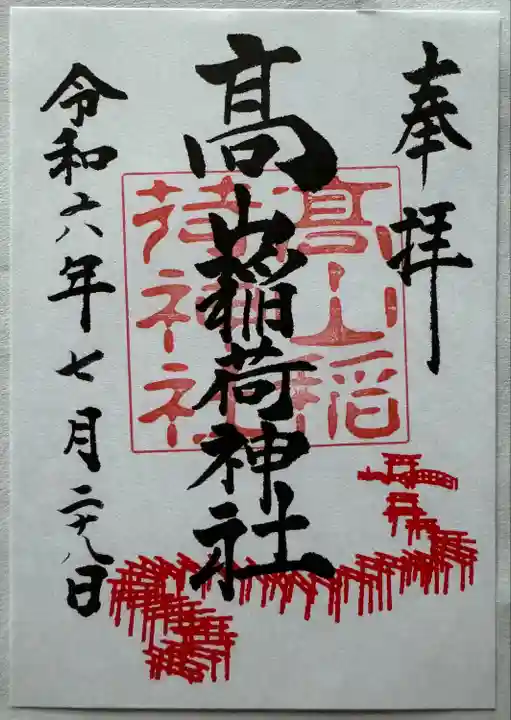 奉拝
高山稲荷神社
令和六年七月二十八日
高山稲
荷神社